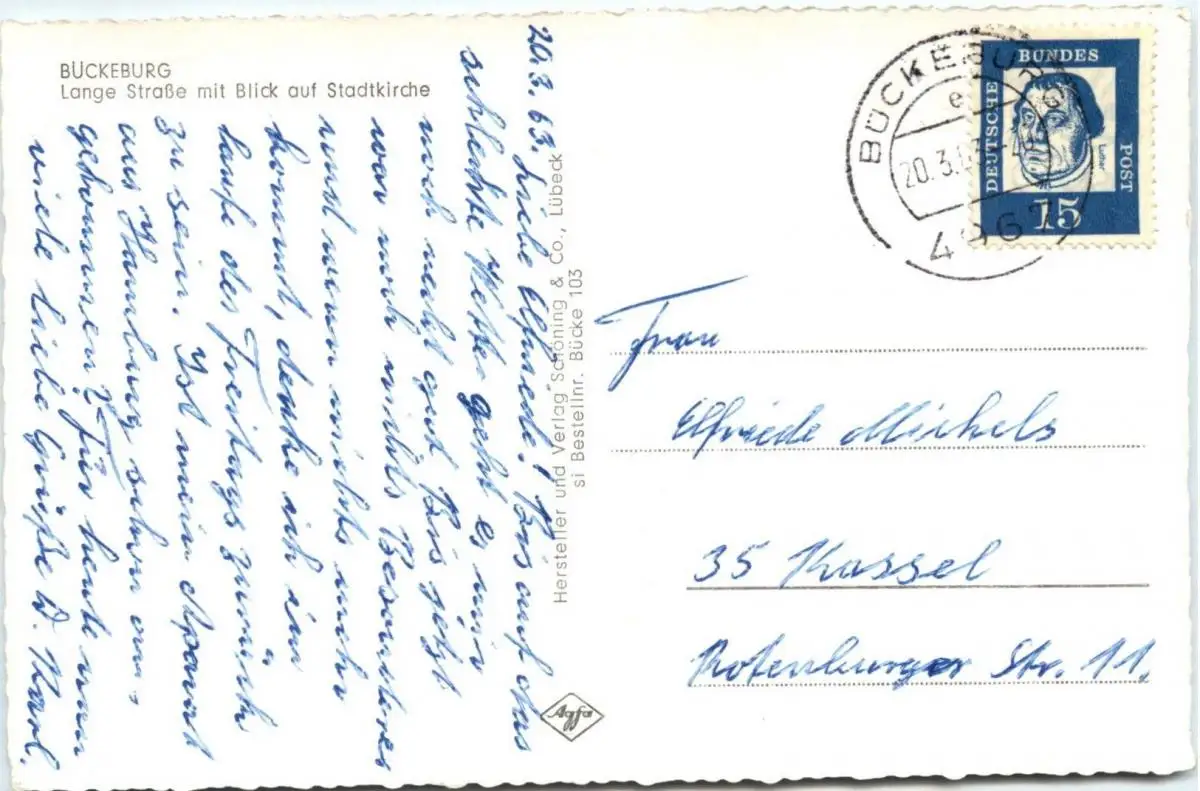 BÜCKEBURG
Lange Straße mit Blick auf Stadtkirche
20.3.63. Liebe Elfriede! Bis auf das
schlechte Wetter geht es mir
noch recht gut. Bis jetzt
war noch nichts Besonderes
und wenn nichts mehr
kommt, denke ich im
Laufe des Freitags zurück
zu sein. Ist mein
aus Hamburg schon an-
gekommen? Für heute nun
viele liebe Grüße D. Karl.
Hersteller und Verlag Schöning & Co., Lübeck
si Bestellnr. Bücke 103
Agfa
BÜCKEBURG
e
20.3.63
4967
DEUTSCHE
BUNDES
POST
Luther
15
Frau
Elfriede Michels
35 Kassel
Rotenburger Str. 11.